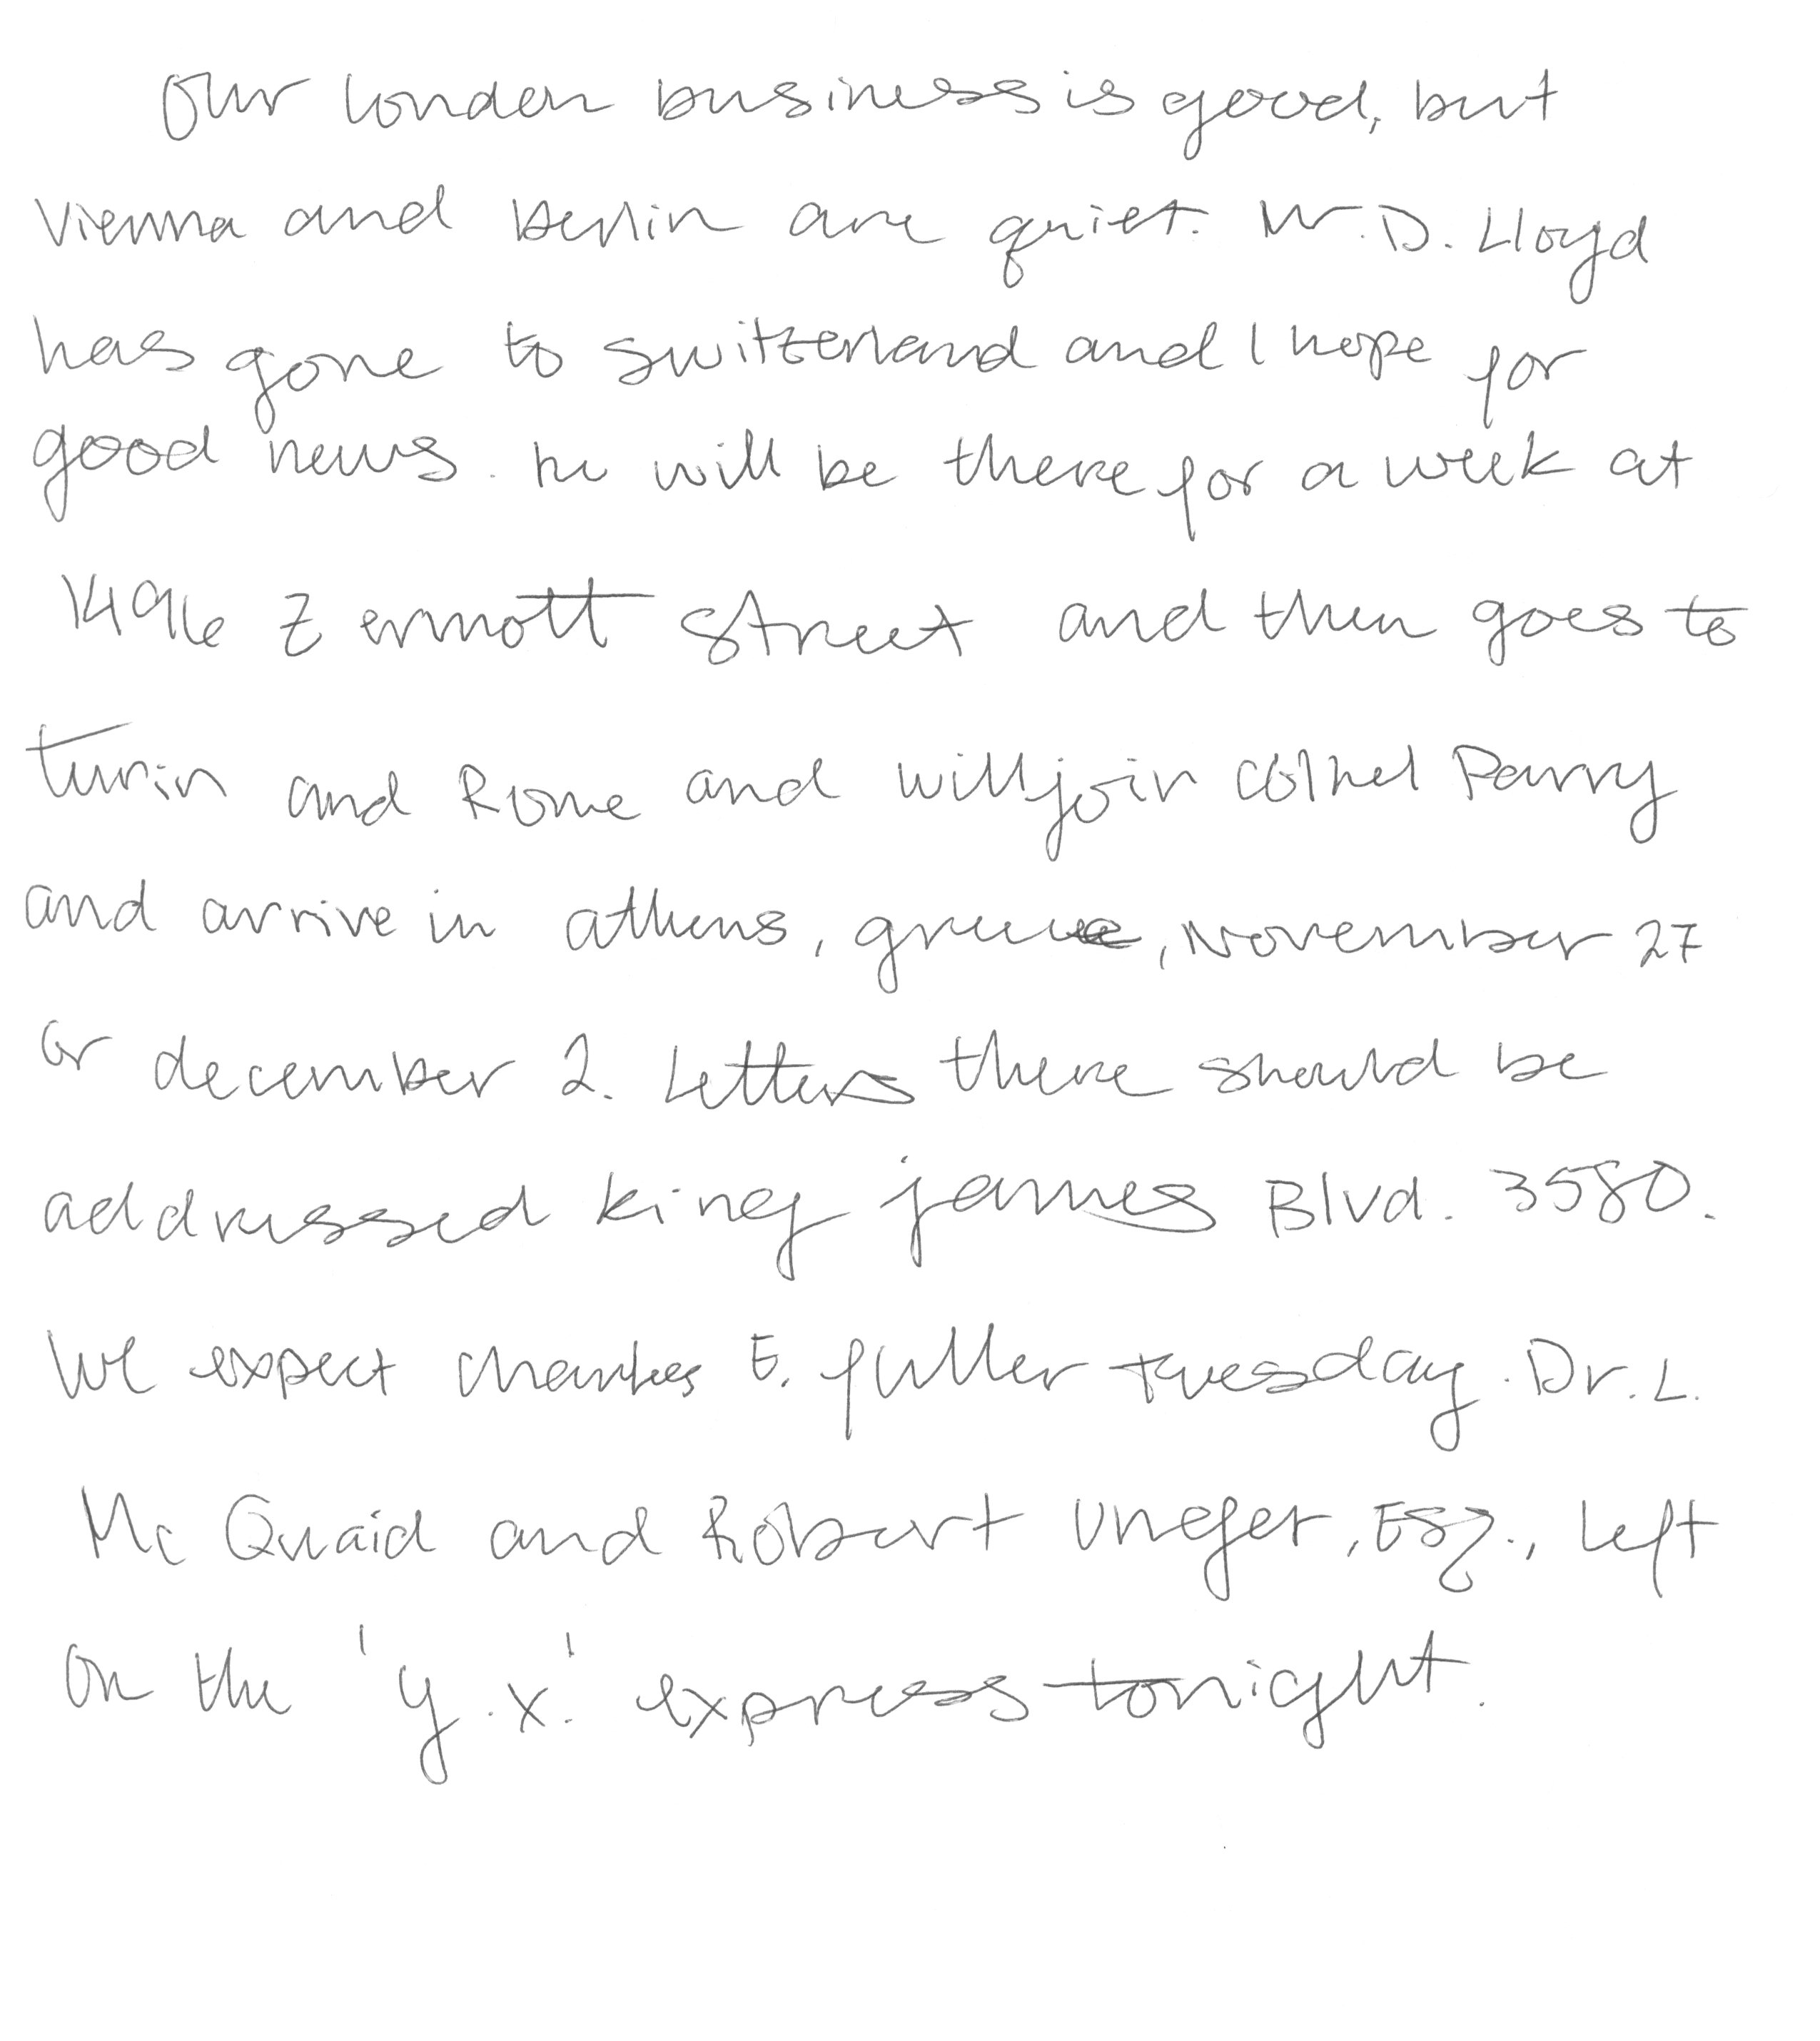 Our london business is good, but
Vienna and Berlin are quiet. Mr. D. Lloyd
has gone to switzerland and I hope for
good news. he will be there for a week at
1496 Zermott Street and then goes to
Turin and Rome and will join Colnel Parry
and arrive in athens, greece, November 27
or december 2. Letters there should be
addressed king james Blvd. 3580.
We expect charles E. fuller tuesday. Dr. L.
Mc Quaid and Robert Unger, Esq., left
on the 'y.x.' express tonight.